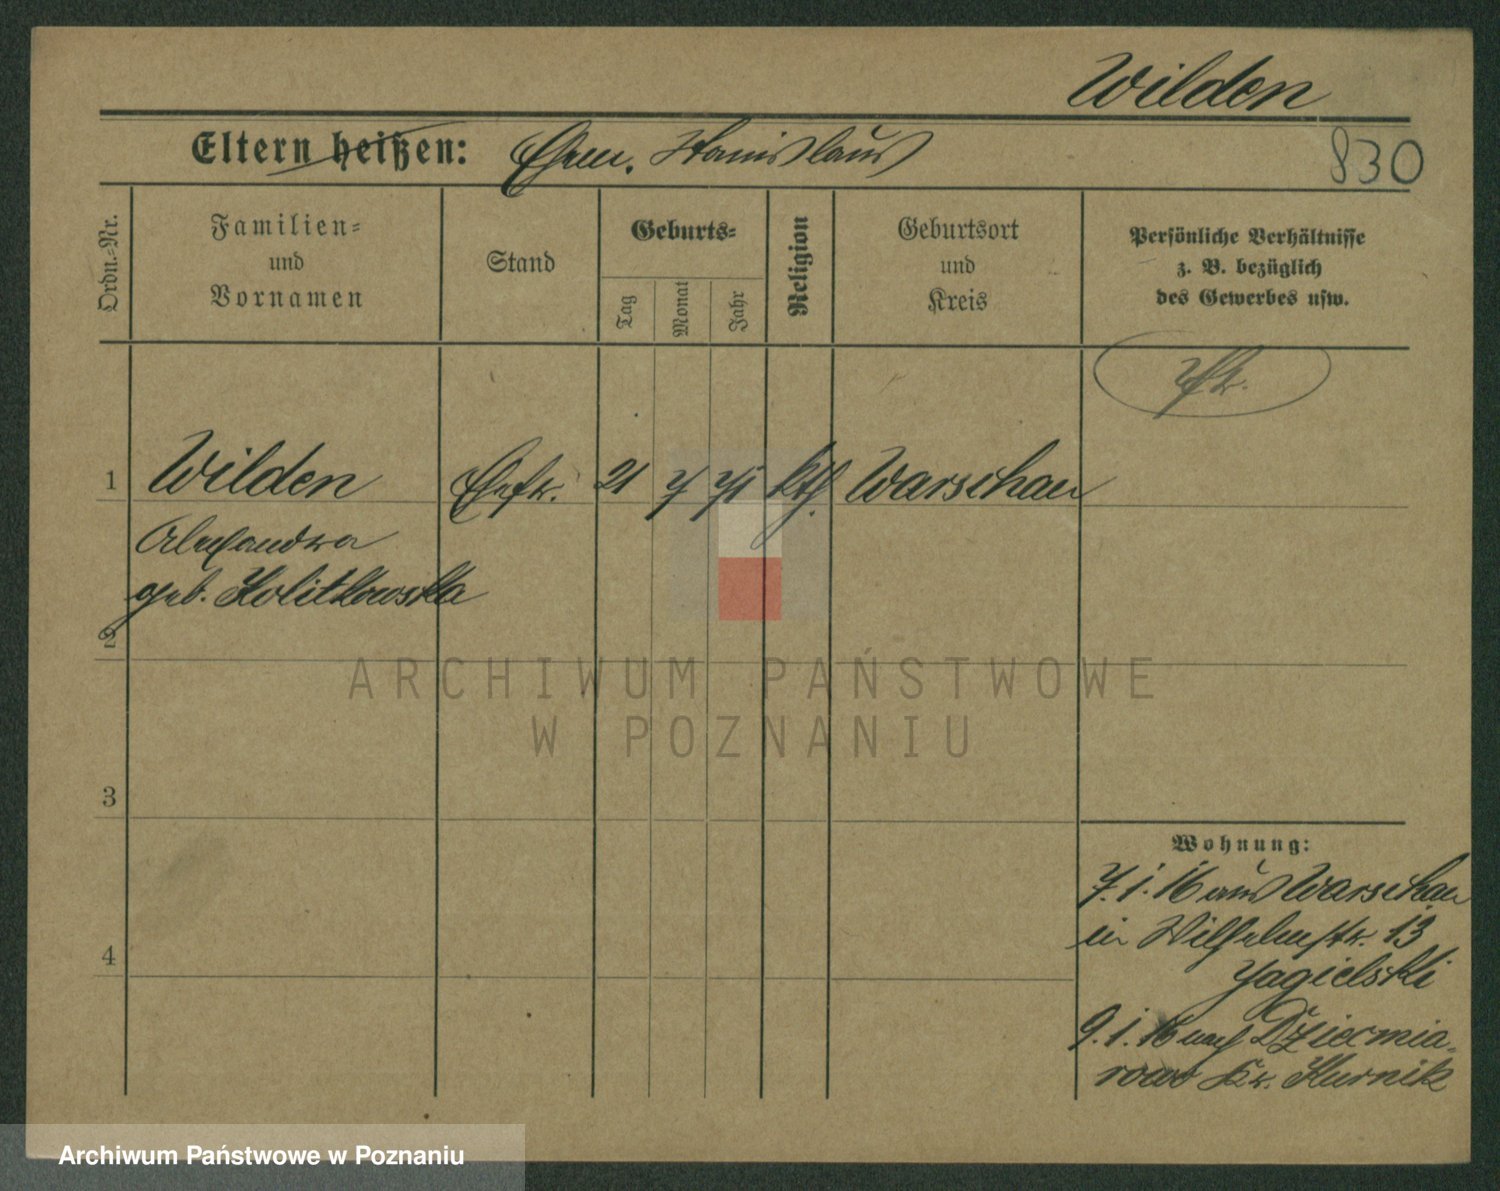 Wilden
Eltern heißen: Ehem. Stanislaus
830
Ordn.-Nr.
Familien-
und
Vornamen
Stand
Geburts-
Tag
Monat
Jahr
Religion
Geburtsort
und
Kreis
Persönliche Verhältnisse
z. B. bezüglich
des Gewerbes usw.
1
Wilden Ehefr. 21 7 kth. Warschau
Alexandra
geb.
2
ARCHIWUM PAŃSTWOWE
W POZNANIU
3
Wohnung:
7.1.16 aus Warschau
in Wilhelmstr. 13
Jagielski
4
9.1.16 nach Dziecmia-
rowo Kr.
Archiwum Państwowe w Poznaniu